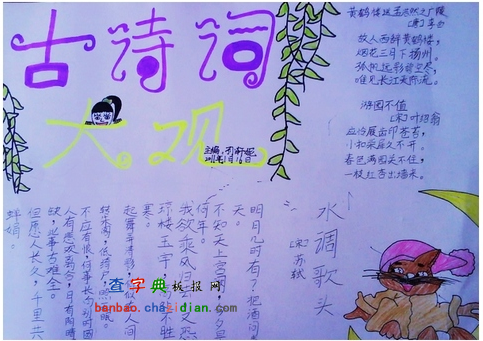 古诗词
大观
黄鹤楼送孟浩然之广陵
【唐】李白
故人西辞黄鹤楼，
烟花三月下扬州。
孤帆远影碧空尽，
唯见长江天际流。
游园不值
【宋】叶绍翁
小扣柴扉久不开。
春色满园关不住，
一枝红杏出墙来。
水调歌头
【宋】苏轼
明月几时有？把酒问
天。
不知天上宫阙，今夕是
何年。
我欲乘风归去，又恐
琼楼玉宇，高处不胜
寒。
起舞弄清影，何似在人间
转朱阁，低绮户，照无眠。
不应有恨，何事长向别时圆
人有悲欢离合，月有阴晴圆
缺，此事古难全。
但愿人长久，千里共
婵娟。
查字典板报网
banbao.chazidian.com